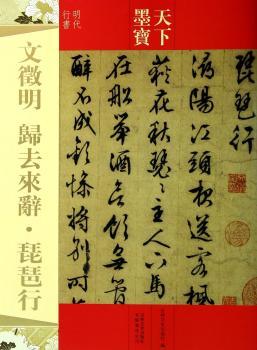 天下
墨寶
明代
行書
文徵明 歸去來辭·琵琶行
琵琶行
潯陽江頭夜送客楓
荻花秋瑟〻主人下馬
在船舉酒欲飲無管
醉不成歡慘將別時